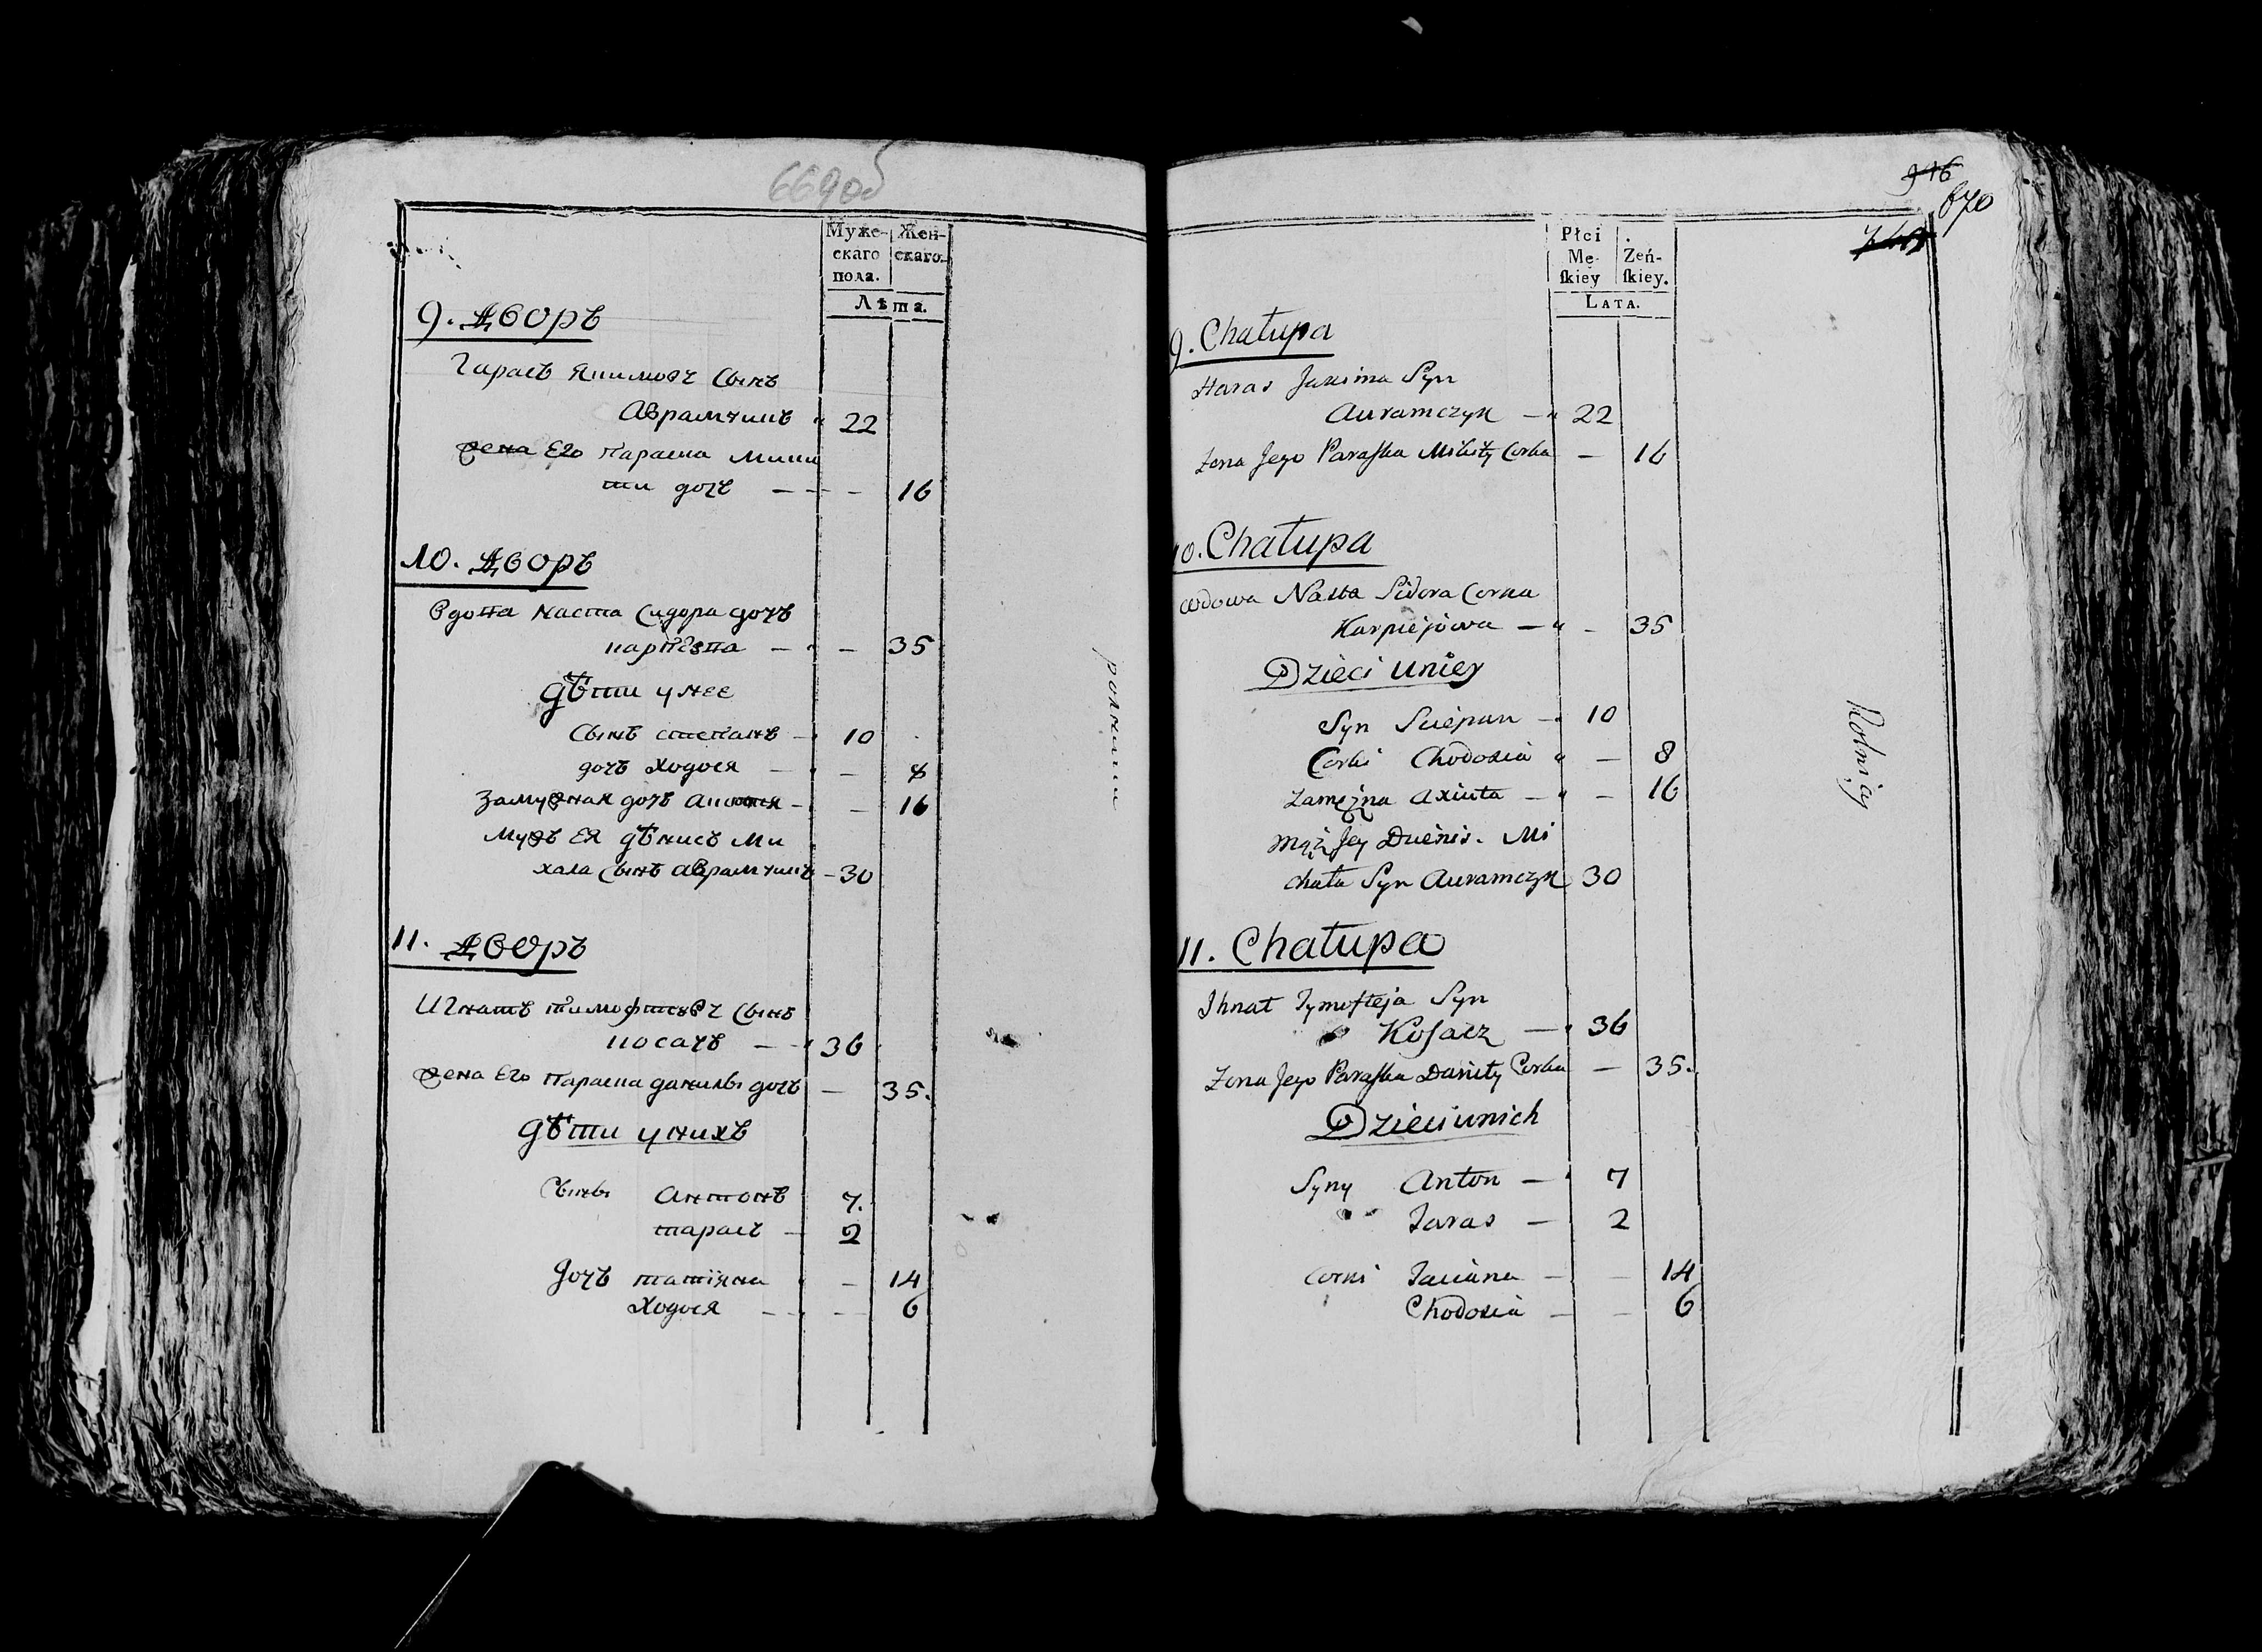 669об
Муже-
скаго
пола.
Жен-
скаго.
Лѣта.
9. Дворъ
Гарасъ Якимовъ Сынъ
Аврамчикъ " 22
жена Его Параска Мики
ты дочь — — — 16
10. Дворъ
Вдова Наста Сидора дочъ
карпѣева — " — 35
дѣти у нее
Сынъ степанъ — 10
дочъ Ходося — " — 8
Замужная дочъ — " — 16
Мужъ Ея дѣнисъ Ми
хала Сынъ Аврамчикъ — 30
11. Дворъ
Игнатъ тимофтеевъ Сынъ
косачъ — " 36
жена Его Параска данилы дочъ — 35.
дѣти у нихъ
Сыны Антонъ 7.
тарасъ — 2
дочъ татіяна " — 14
Ходося — — — 6
ролники
916
670
Płci
Mę-
ſkiey
Zeń-
ſkiey.
LATA.
9. Chałupa
Haras Jakima Syn
Auramczyk — " 22
Zona Jego Paraſka Mikity Corka — 16
10. Chałupa
wdowa Nasta Sidora Corka
Karpiejowa — " - 35
Dzieci uniey
Syn Sciepan — 10
Corki Chodosia " — 8
zamężna Axiuta — " — 16
mąż Jey Dzienis. Mi
chała Syn Auramczyk 30
11. Chałupa
Ihnat Tymofteja Syn
Koſacz — " 36
Zona Jego Paraſka Daniły Corka — 35.
Dzieci unich
Syny Anton — " 7
Taras — 2
Corki Taciana — — 14
Chodosia — — 6
Rolnicy